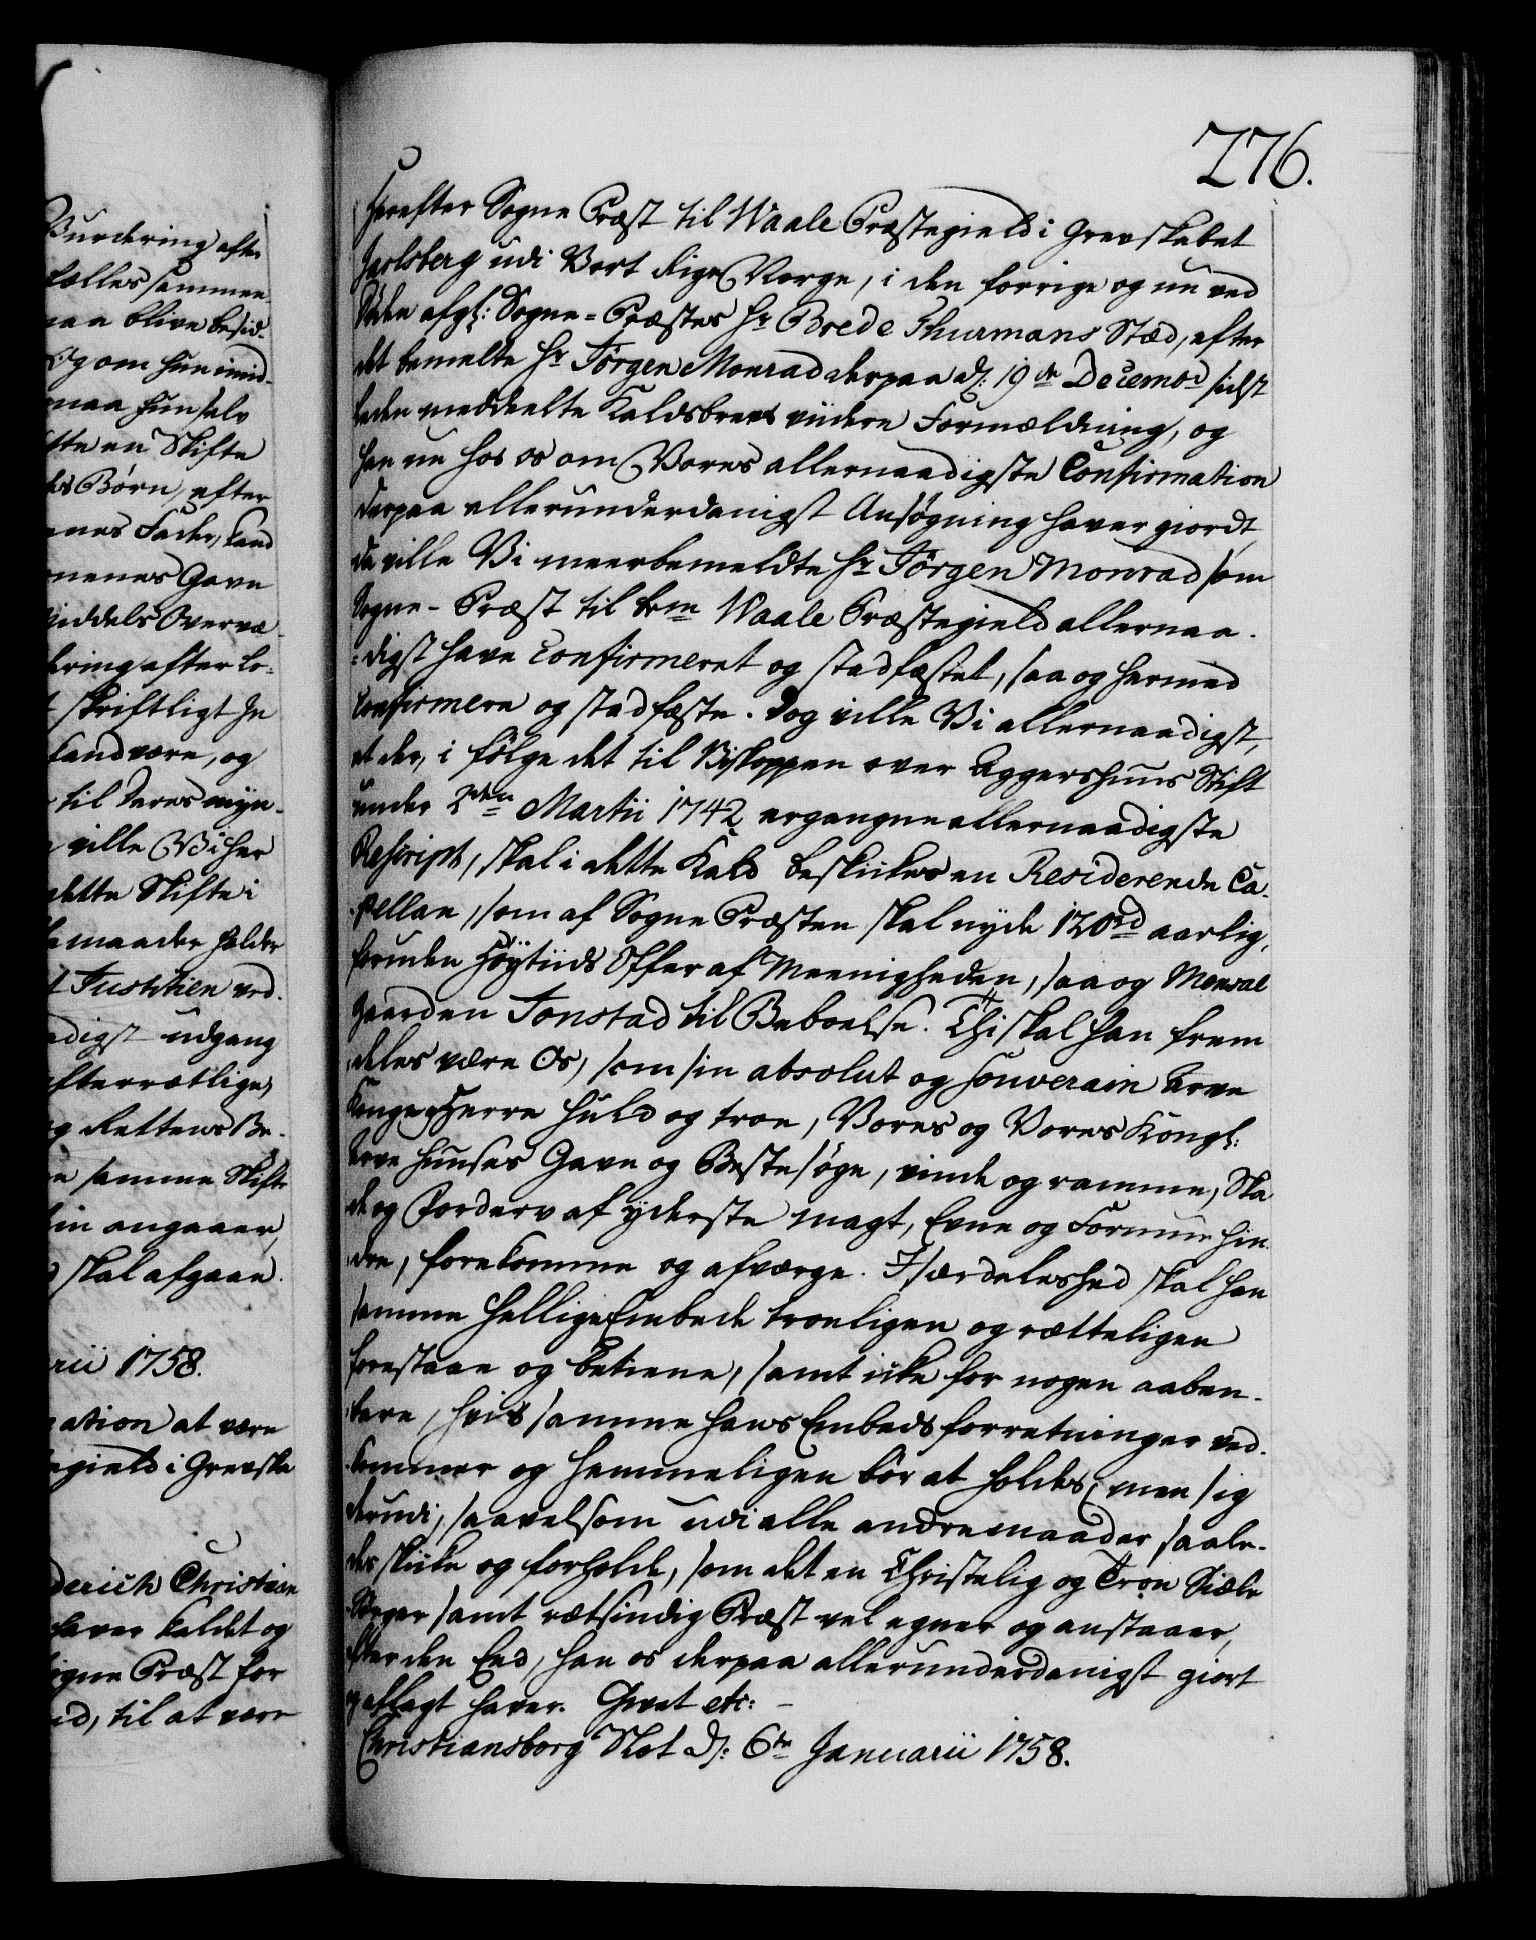 Vurdering efter
fælles sammen
maa blive besid-
Og om hun imid-
maa hun selv
sette en Skifte
des Børn, efter
enes Fader, kand
rnenes Gavn
Middels Overvæ-
bering efter lo-
skriftligt In
kand være, og
til deres myn-
ville Vi her
dette Skifte i
maader holde
Justitien ved-
adigst udgang
efterretlige,
og Rettens Be-
samme Skifte
in angaaer,
skal afgaae.
rii 1758.
ation at være
egield i Grevska
derich Christian
haver kaldet og
ogne Præst for
ud, til at være
276.
herefter Sogne Præst til Waale Præstegield i Grevskabet
Jarlsberg udi Vort Rige Norge, i den forrige og nu ved
Døden afg: Sogne-Præstes Hr Brede Thurmans Stæd, efter
det bemelte Hr Jørgen Monrad derpaa d: 19de Decembr sidst-
leden meddeelte Kaldsbrevs viidere Formælding, og
han nu hos os om Vores allernaadigste Confirmation
derpaa allerunderdanigst Ansøgning haver giordt,
da ville Vi meerbemeldte Hr Jørgen Monrad som
Sogne-Præst til bem Waale Præstegield allernaa-
digst have confirmeret og stadfæstet, saa og hermed
confirmere og stadfæste. Dog ville Vi allernaadigst,
at der, i følge det til Biskoppen over Aggershuus Stift
under 2den Martii 1742 ergangne allernaadigste
Rescript, skal i dette Kald beskikkes en Residerende Ca-
pellan, som af Sogne Præsten skal nyde 120 rd aarlig,
foruden Høytiids Offer af Meenigheden, saa og Mensal
Gaarden Jonstad til Beboelse. Thi skal han frem-
deles være Os, som sin absolut og souverain Arve
Konge og Herre huld og troe, Vores og Vores Kongl:
Arve Huuses Gavn og Beste søge, vinde og ramme, Ska-
de og Forderv af yderste magt, Evne og Formue hin-
dre, forekomme og afværge. Iserdeleshed skal han
samme hellige Embede troeligen og rætteligen
forestaae og betiene, samt icke for nogen aaben-
bare, hvis samme hans Embeds forretninger ved-
kommer og hemmeligen bør at holdes, men sig
derudi, saavelsom udi alle andre maader saale-
des skicke og forholde, som det en Christelig og Troe Siæle
Sørger samt rætsindig Præst vel egner og anstaaer,
efter den Eed, han os derpaa allerunderdanigst giort
og aflagt haver. Givet etc:
Christiansborg Slot d: 6te Januarii 1758.